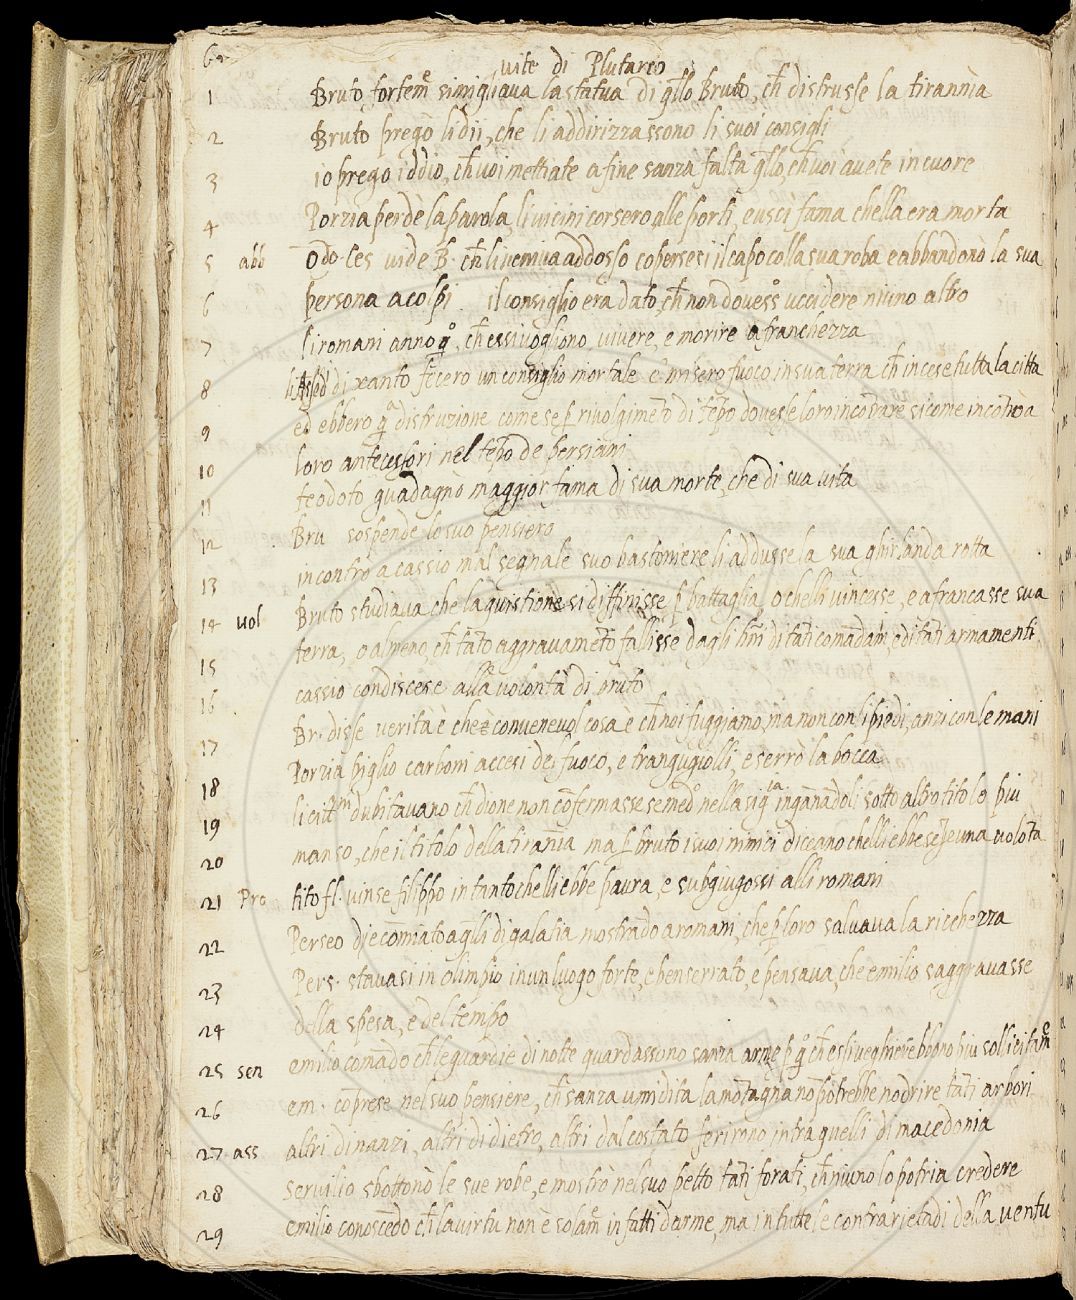 6
vite di Plutarco
1 Bruto fortem̃e simigliava la statua di q̃llo Bruto, ch̃ distrusse la tirannia
2 Bruto pregò li dii, che li addirizzassono li suoi consigli
3 io prego iddio, ch̃ voi mettiate a fine sanza falta q̃llo, ch̃ voi avete in cuore
4 Porzia perdè la parola, li vicini corsero alle porti, e uscì fama chella era morta
5 abb Ces vide B. ch̃ li veniva addosso copersesi il capo colla sua roba e abbandonò la sua
6 persona a colpi il consiglio era dato, ch̃ non dovess̃ uccidere niuno altro
7 li romani anno ch̃ essi vogliono vivere, e morire a franchezza
8 di xanto fecero un consiglio mortale e misero fuoco in sua terra ch̃ incese tutta la citta
9 ed ebbero distruzione come se p̃ rivolgimẽto di tẽpo dovesse loro incõtrare sicome incõtrò a
10 loro antecessori nel tẽpo de persiani
11 teodoto guadagnò maggior fama di sua morte, che di sua vita
12 Bru sospende lo suo pensiero
incontrò a cassio mal segnale suo bastoniere li addusse la sua ghirlanda rotta
13
14 vol Bruto studiava che la quistione si diffinisse p̃ battaglia o chelli vincesse, e afrancasse sua
terra, o almeno ch̃ tãto aggravamẽto fallisse dagli hm̃i di tãti comãdam̃, e di tãti armamenti
15 cassio condiscese alla volontà di bruto
16 Br. disse verità è che convenevol cosa è ch̃ noi fuggiamo, ma non con li piedi, anzi con le mani
17 Porzia piglio carboni accesi del fuoco, e trangugiolli, e serrò la bocca
18 li citt dubitavano ch̃ dione non cõfermasse semed̃o nella sig.ia ingãnãdoli sotto altro titolo più
19 manso, che il titolo della tirãnia ma p̃ bruto i suoi nimici diceano chelli ebbe una volõtà
20
21 Pro tito fl. vinse filippo in tanto chelli ebbe paura, e subgiugossi alli romani
22 Perseo diè comiato aq̃lli di galatia mostrãdo a romani, che p̃ loro salvava la ricchezza
Pers. stavasi in olimpio in un luogo forte, e ben serrato, e pensava, che emilio s aggravasse
23 della spesa, e del tempo
24
25 sen emilio comãdò ch̃ le guardie di notte guardassono sanza arme p̃ q̃o ch̃ essi veghierebbono più sollicitam̃e
26 em. cõprese nel suo pensiere, ch̃ sanza umidità la mõtagna nõ potrebbe nodrire tãti arbori
27 ass altri dinanzi, altri didietro, altri dal costato ferirono intra quelli di macedonia
28 servilio sbottonò le sue robe, e mostrò nel suo petto tãti forati, ch̃ niuno lo potria credere
29 emilio conoscẽdo ch̃ la virtù non è solam̃ in fatti darme, ma in tutte le contrarietadi della ventu